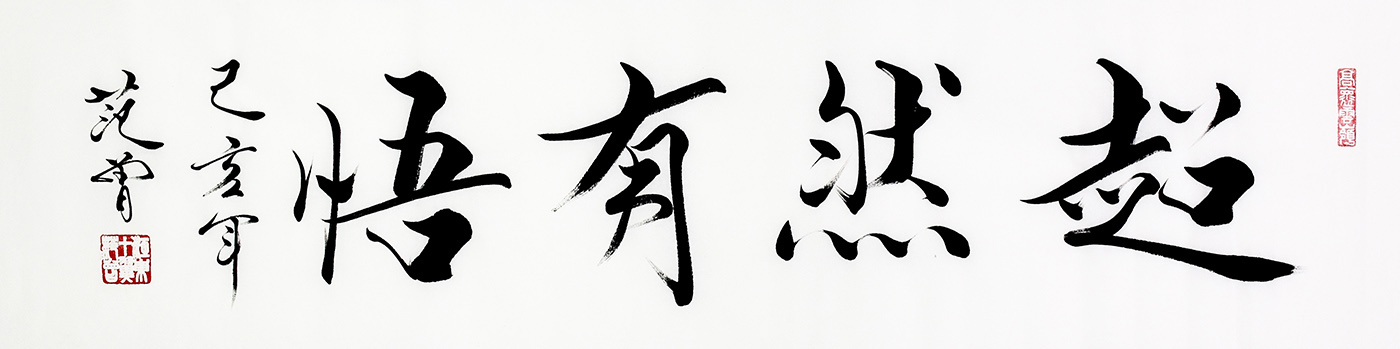 超然有悟
己亥年
范曾